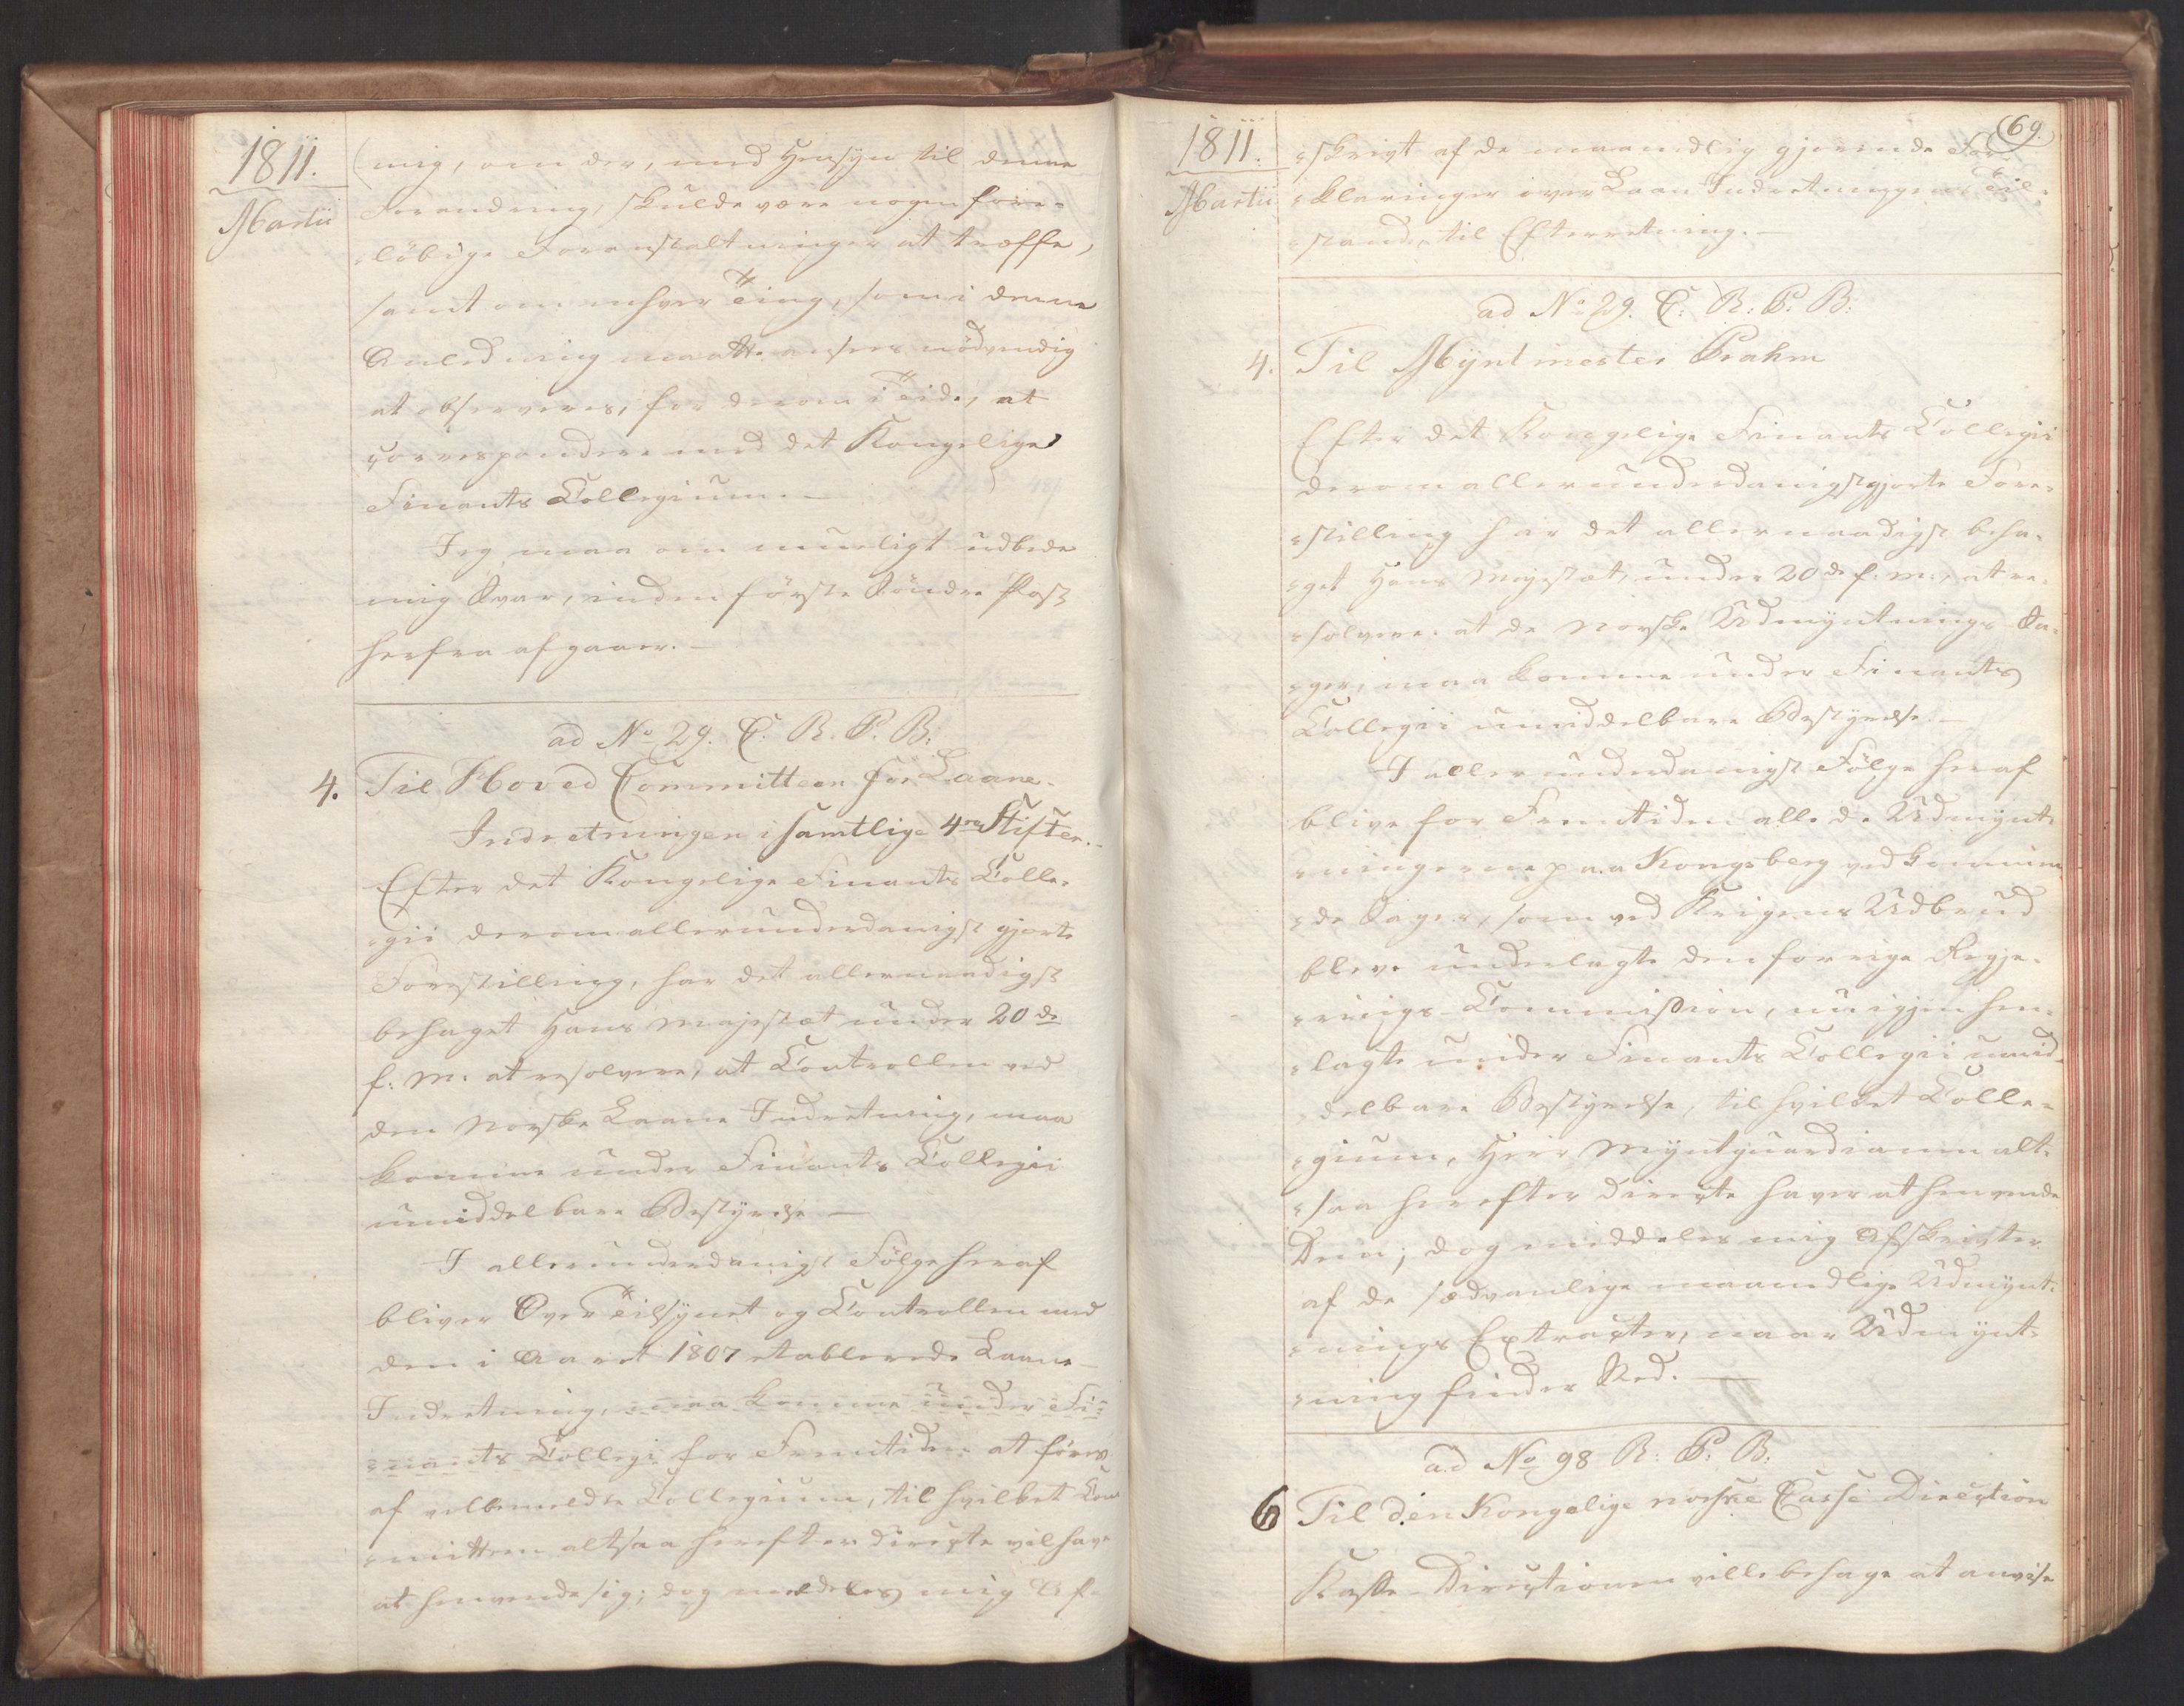 1811.
Martii
mig, om der, med Hensyn til denne
Forandring, skulde være nogen fore-
-löbige Foranstaltninger at træffe,
samt om enhver Ting, som i denne
Anledning maatte ansees nödvendig
at observeres, for derom i Tide, at
correspondere med det Kongelige
Finants Collegium. —
Jeg maa om mueligt udbede
mig Svar, inden förste Söndre Post
herfra afgaaer. —
ad No 29. C. R. P. B:
4. Til Hoved Committeen for Laane-
Indretningen i samtlige 4re Stifter.
Efter det Kongelige Finants Colle-
-gii derom allerunderdanigst gjorte
Forestilling, har det allernaadigst
behaget Hans Majestæt under 20de
f: M: at resolvere, at Controllen ved
den Norske Laane Indretning, maa
komme under Finants Collegii
umiddelbare Bestyrelse —
I allerunderdanigst Fölge heraf
bliver Over Tilsynet og Controllen med
den i Aaret 1807 etablerede Laane-
Indretning, maa komme under Fi-
-nants Collegi for Fremtiden at föres
af velbemeldte Collegium, til hvilket Com
-mitteen altsaa herefter directe vil have
at henvende sig; dog meddeles mig Af-
1811.
Martii
69.
-skrivt af de maanedlig gjorende For-
-klaringer over Laan Indretningens Til-
-stand, til Efterretning. —
ad No 29. C. R: P. B:
4. Til Myntmester Prahm
Efter det Kongelige Finants Collegii
derom allerunderdanigst gjorte Fore-
-stilling har det allernaadigst beha-
-get Hans Majestæt, under 20de f. M., at re-
-solvere: at de Norske Udmyntnings Sa-
-ger, maa komme under Finants
Collegii umiddelbare Bestyrelse. —
I allerunderdanigst Fölge heraf
blive for Fremtiden alle de Udmynt-
-ningerne paa Kongsberg vedkommen
-de Sager, som ved Krigens Udbrud
bleve underlagte den forrige Regje-
-rings-Commission, nu igjen hen-
-lagte under Finants Collegii umid-
-delbare Bestyrelse, til hvilket Colle-
-gium, Herr Myntguardianen alt-
-saa herefter directe haver at henvende
Dem; dog meddeles mig Afskrivter
af de sædvanlige maanedlige Udmynt-
-nings Extracter, naar Udmynt-
-ning finder Sted. —
ad No 98 R: P: B:
6 Til den Kongelige norske Casse Direction
Kasse-Directionen ville behage at anvise